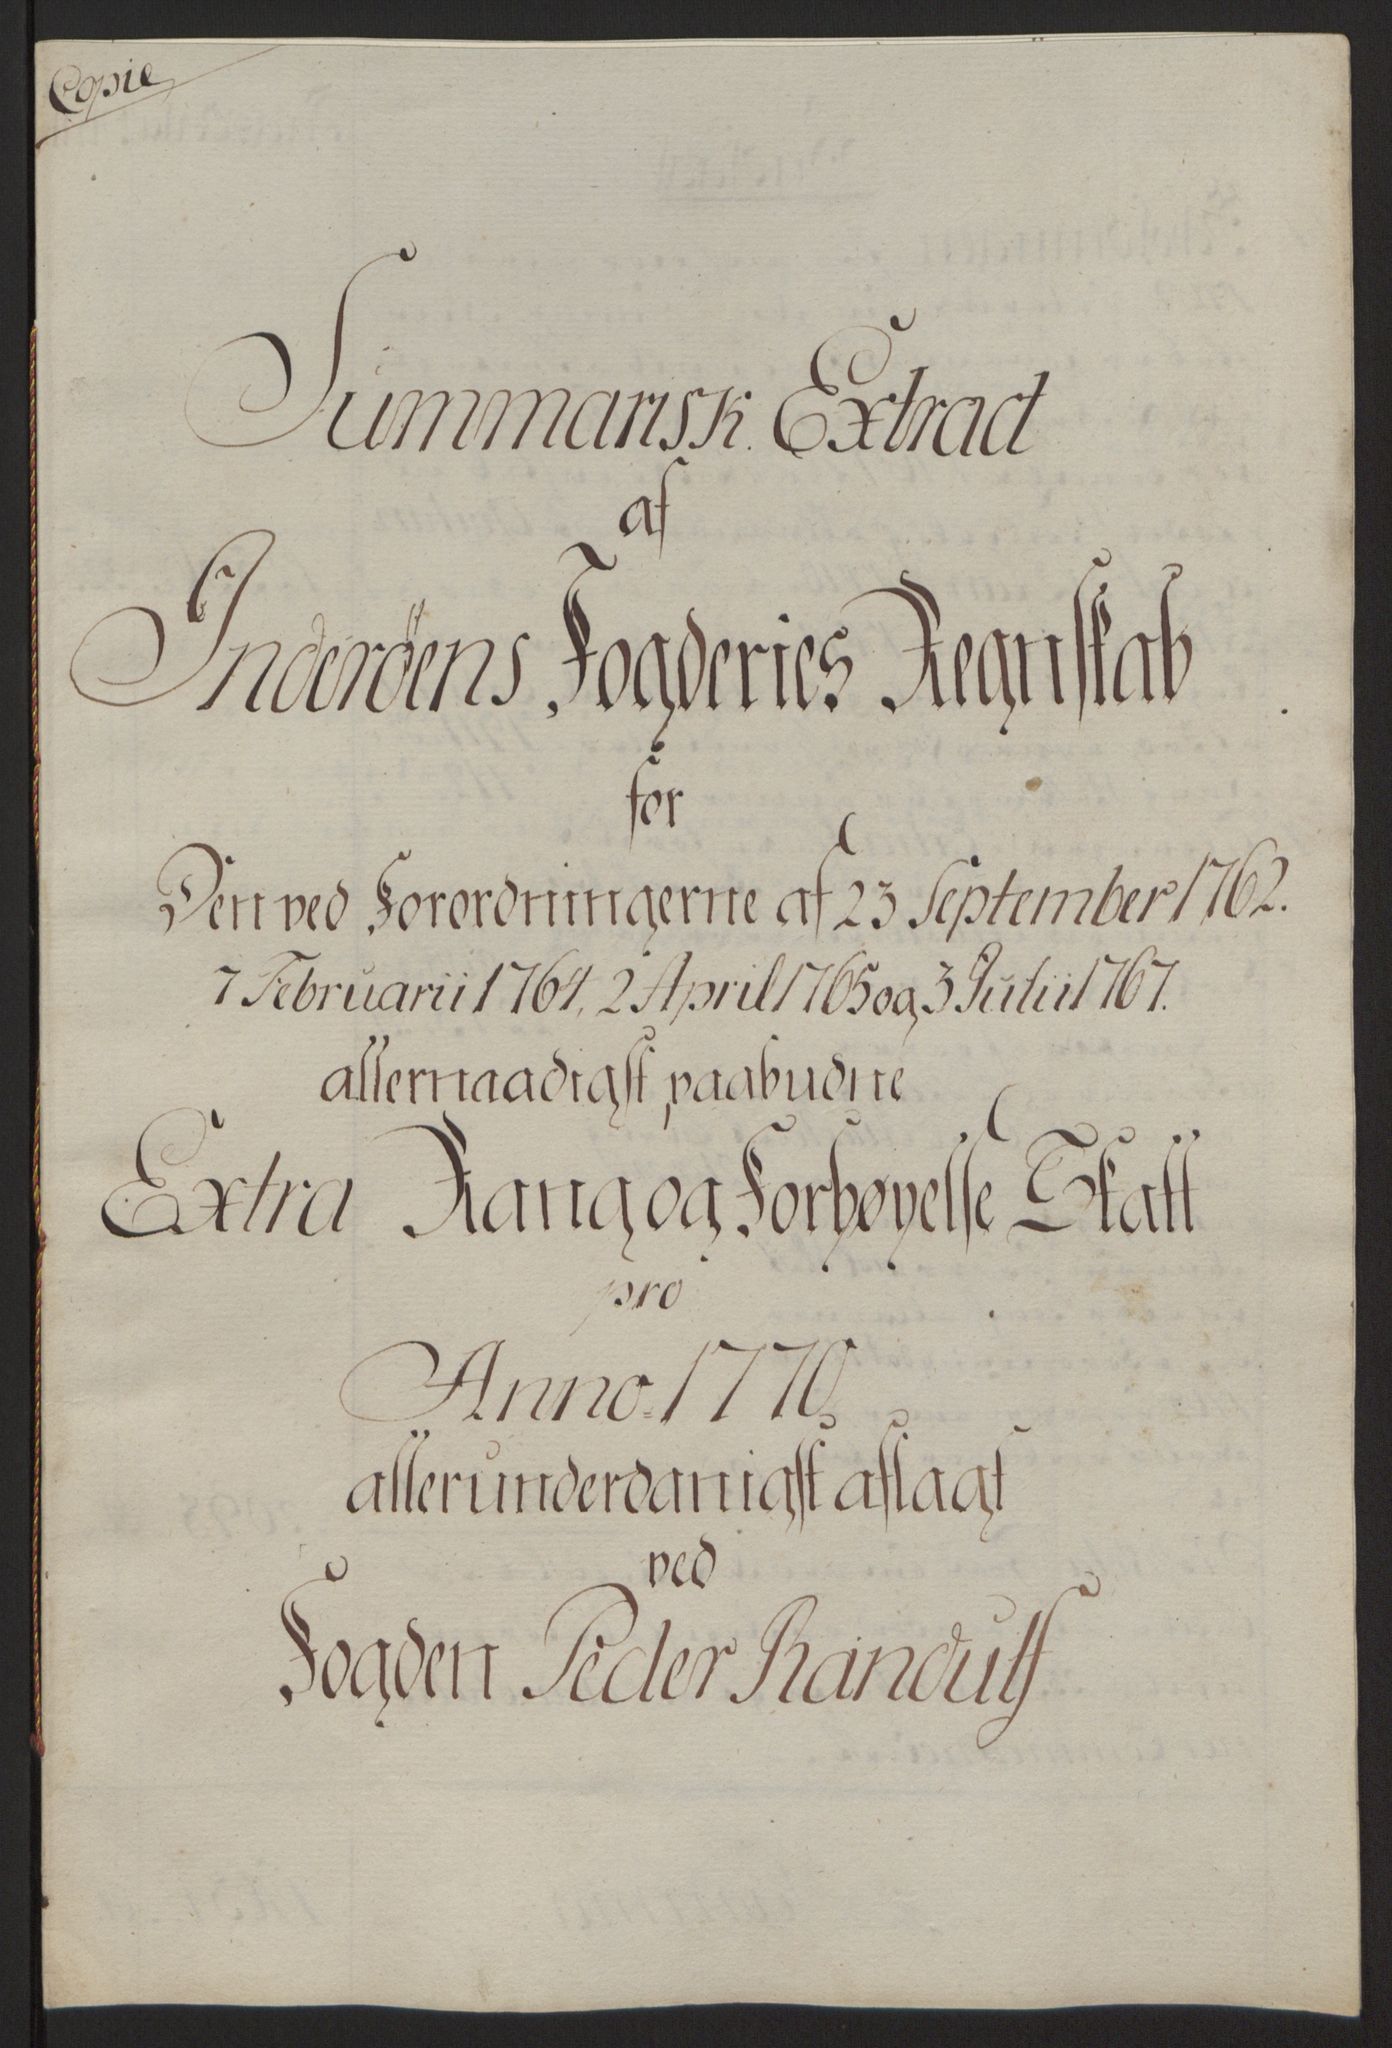 Copie
Summarisk Extract
af
Inderöens Fogderies Regnskab
for
Den ved Forordningerne af 23 September 1762.
7 Februarii 1764, 2 April 1765 og 3 Julii 1767.
allernaadigst paabudne
Extra Rang og Forhøyelse Skatt
pro
Anno 1770,
allerunderdanigst aflagt
ved
Fogden Peder Randulf